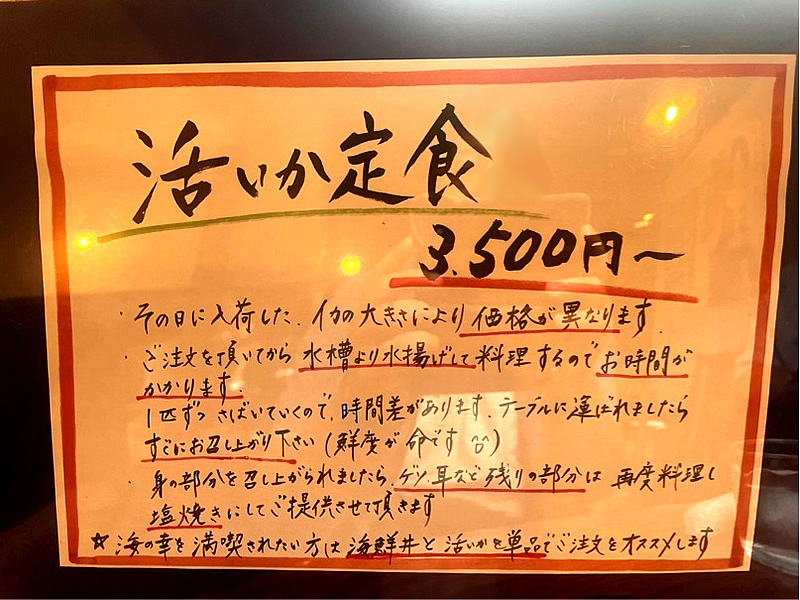 活いか定食
3,500円〜
・その日に入荷した、イカの大きさにより価格が異なります。
・ご注文を頂いてから水槽より水揚げして料理するのでお時間が
かかります。
1匹ずつさばいていくので、時間差があります。テーブルに運ばれましたら
すぐにお召し上がり下さい(鮮度が命です^^)
・身の部分を召し上がられましたら、ゲソ、耳など残りの部分は再度料理し
塩焼きにしてご提供させて頂きます
☆海の幸を満喫されたい方は海鮮丼と活いかを単品でご注文をオススメします